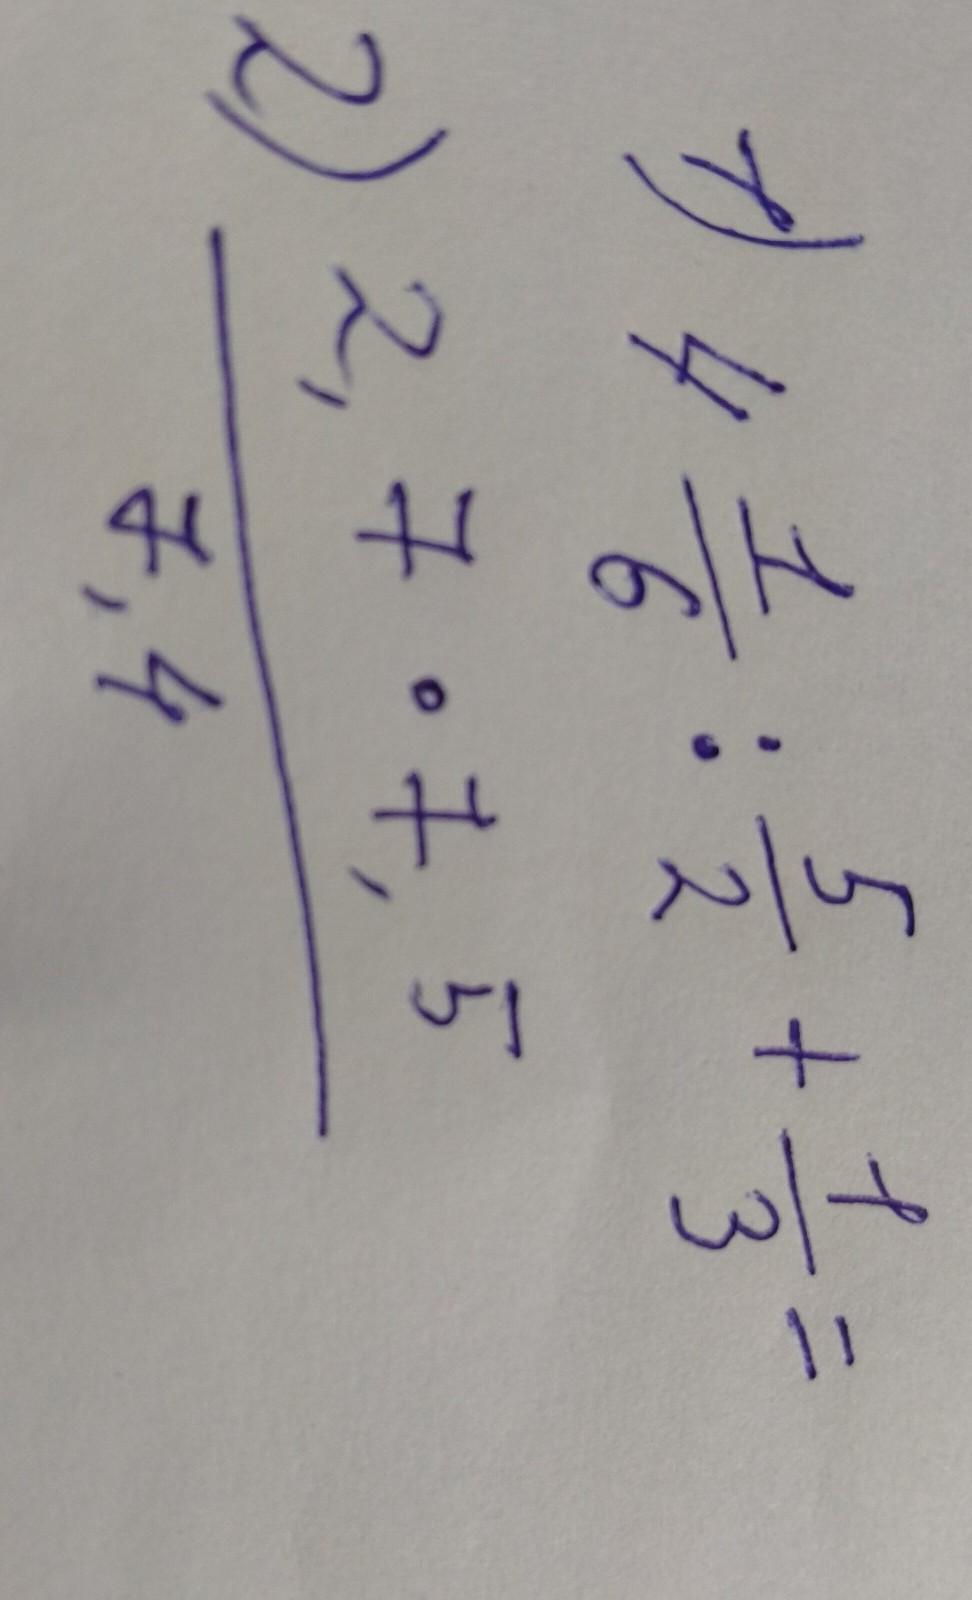 1) 4 1/6 : 5/2 + 1/3 =
2) 2,7 · 7,5
7,4